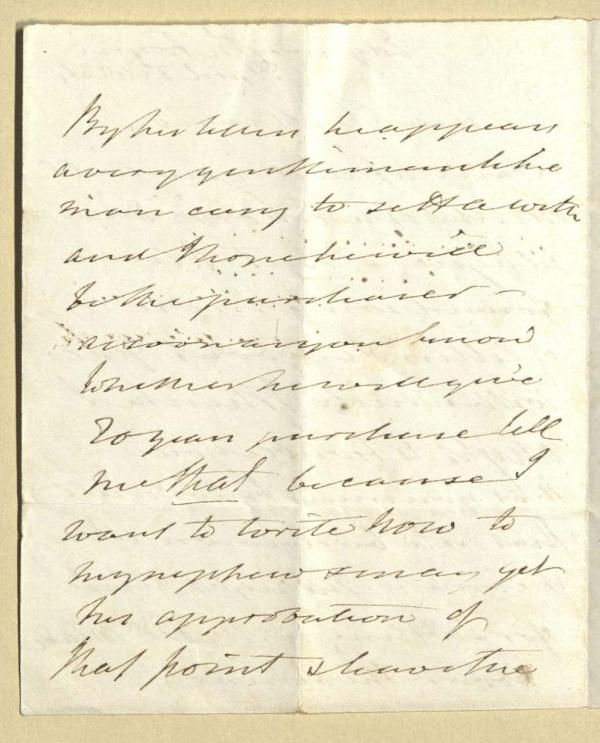 By his letters he appears
a very gentlemanlike
man easy to settle with
and I hope he will
be the purchaser -
as soon as you know
whether he will give
20 years purchase tell
me that because I
want to write now to
my nephew & may get
his approbation of
that point & have the